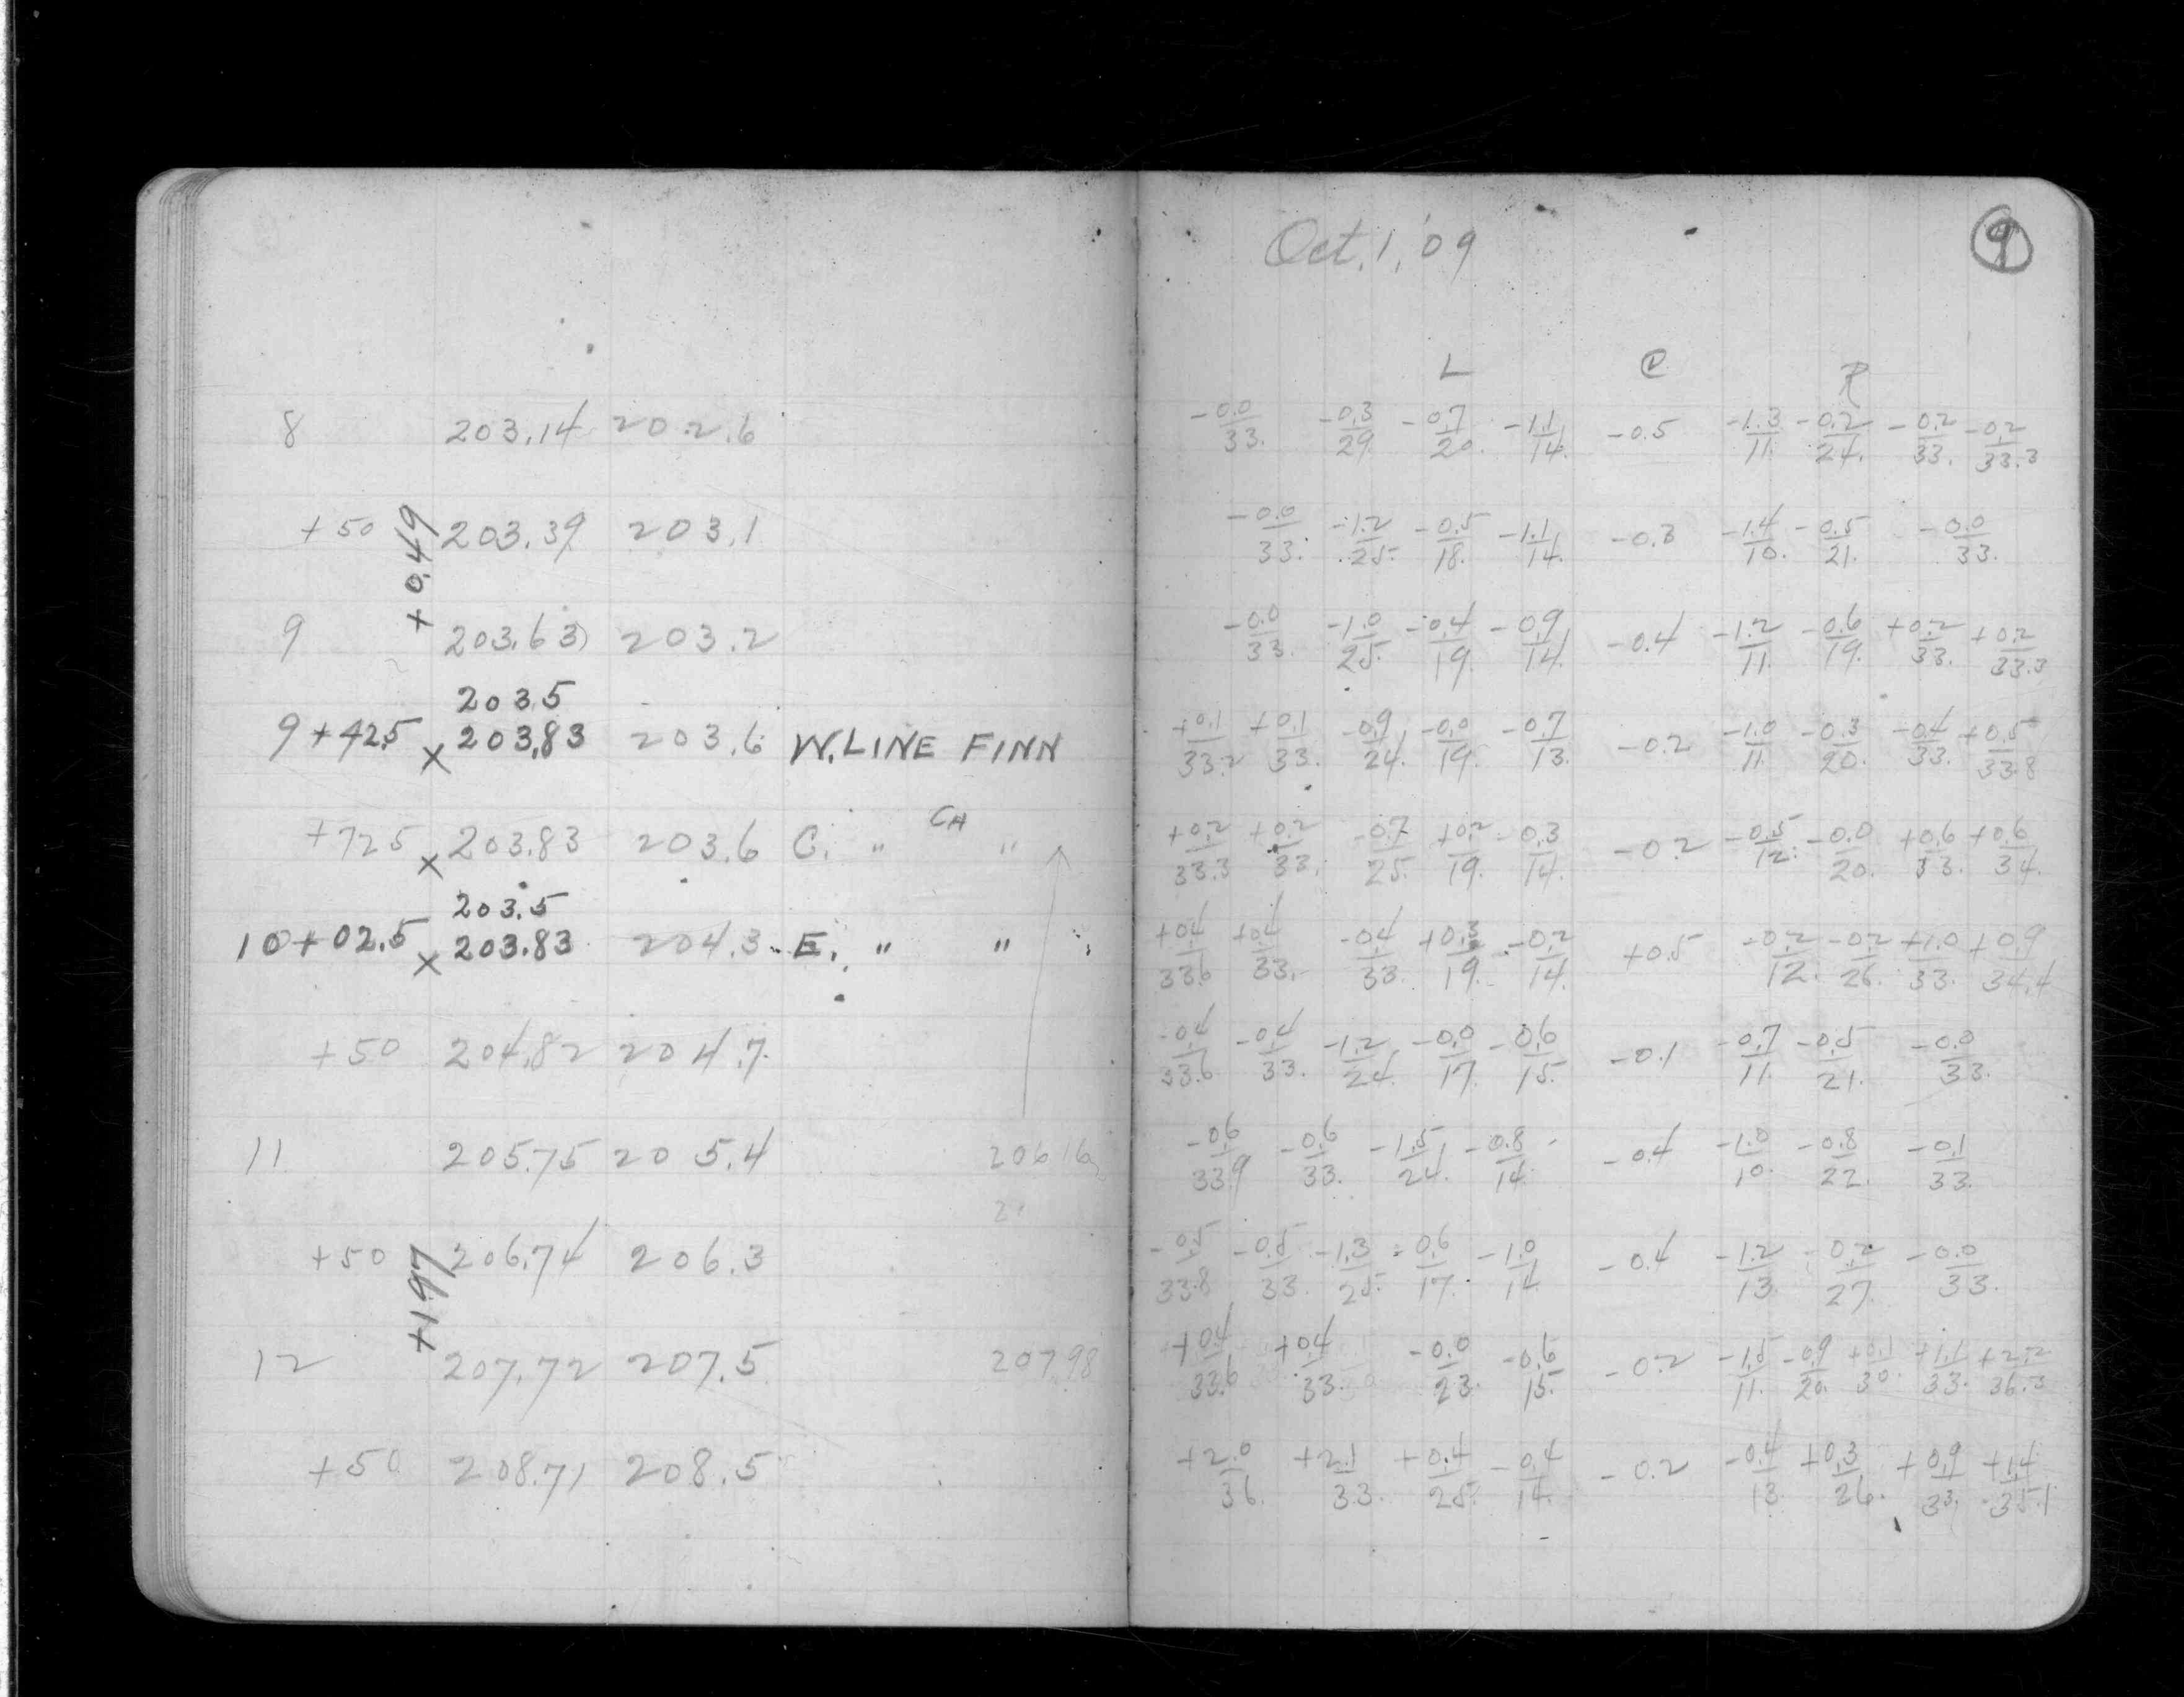 Oct. 1, '09
9
L C R
8 203.14 202.6 -0.0/33. -0.3/29. -0.7/20. -1.1/14. -0.5 -1.3/11. -0.2/24. -0.2/33. -0.2/33.3
+0.49
+50 203.39 203.1 -0.0/33. -1.2/25. -0.5/18. -1.1/14. -0.3 -1.4/10. -0.5/21. -0.0/33.
9 203.63 203.2 -0.0/33. -1.0/25. -0.4/19. -0.9/14. -0.4 -1.2/11. -0.6/19. +0.2/33. +0.2/33.3
203.5
9+42.5 x 203.83 203.6 W. LINE FINN +0.1/33.2 +0.1/33. -0.9/24. -0.0/19. -0.7/13. -0.2 -1.0/11. -0.3/20. -0.4/33. +0.5/33.8
+72.5 x 203.83 203.6 C. " CH " +0.2/33.3 +0.2/33. -0.7/25. +0.2/19. -0.3/14. -0.2 -0.5/12. -0.0/20. +0.6/33. +0.6/34.
203.5
10+02.5 x 203.83 204.3 E. " " +0.4/33.6 +0.4/33. -0.4/33. +0.3/19. -0.2/14. +0.5 -0.2/12. -0.2/26. +1.0/33. +0.9/34.4
+50 204.82 204.7 -0.4/33.6 -0.4/33. -1.2/24. -0.0/17. -0.6/15. -0.1 -0.7/11. -0.5/21. -0.0/33.
11 205.75 205.4 206.16 -0.6/33.9 -0.6/33. -1.5/24. -0.8/14. -0.4 -1.0/10. -0.8/22. -0.1/33.
+1.97
+50 206.74 206.3 -0.5/33.8 -0.5/33. -1.3/25. -0.6/17. -1.0/14. -0.4 -1.2/13. -0.2/27. -0.0/33.
12 207.72 207.5 207.98 +0.4/33.6 +0.4/33. -0.0/23. -0.6/15. -0.2 -1.5/11. -0.9/20. +0.1/30. +1.1/33. +2.2/36.3
+50 208.71 208.5 +2.0/36. +2.1/33. +0.4/25. -0.4/14. -0.2 -0.4/13. +0.3/26. +0.9/33. +1.4/35.1